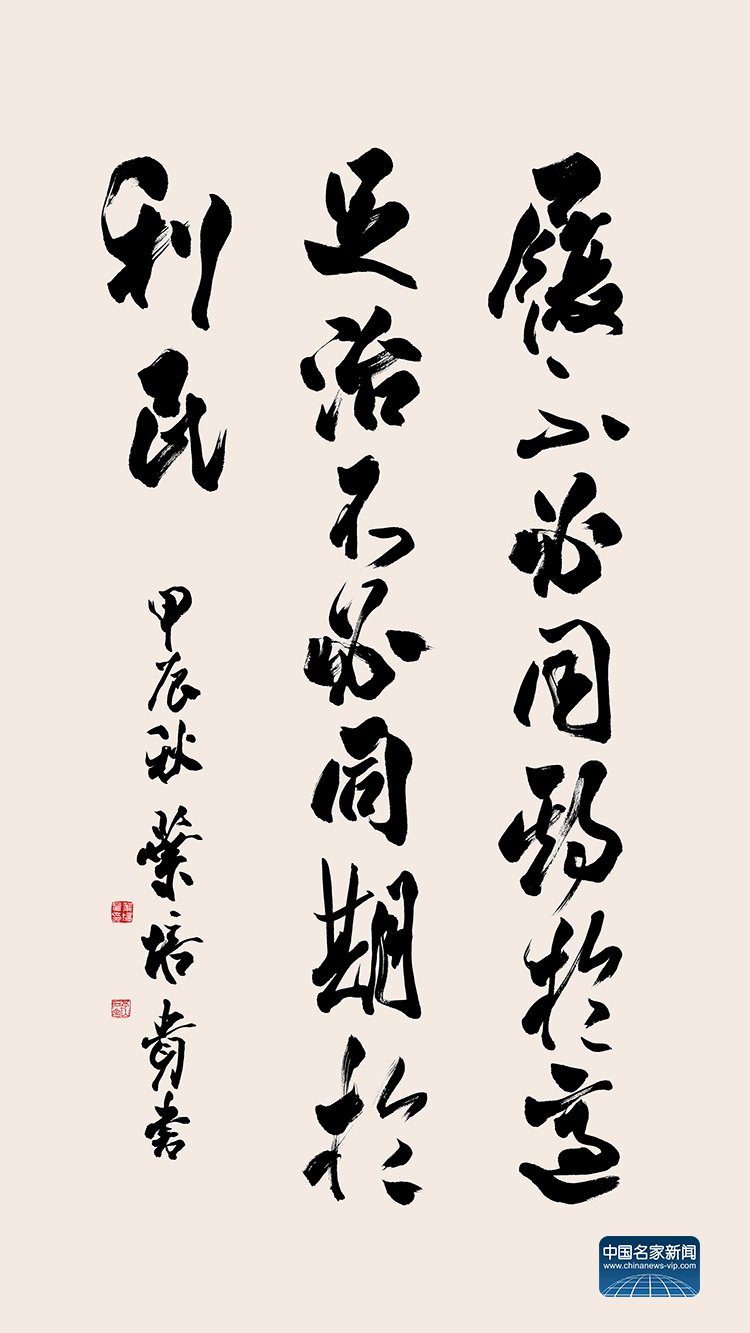 履不必同期於適
足治不必同期於
利民
甲辰秋榮培貴書
中国名家新闻
www.chinanews-vip.com